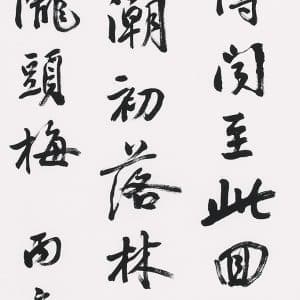 聞至此回
潮初落林
隴頭梅 丙